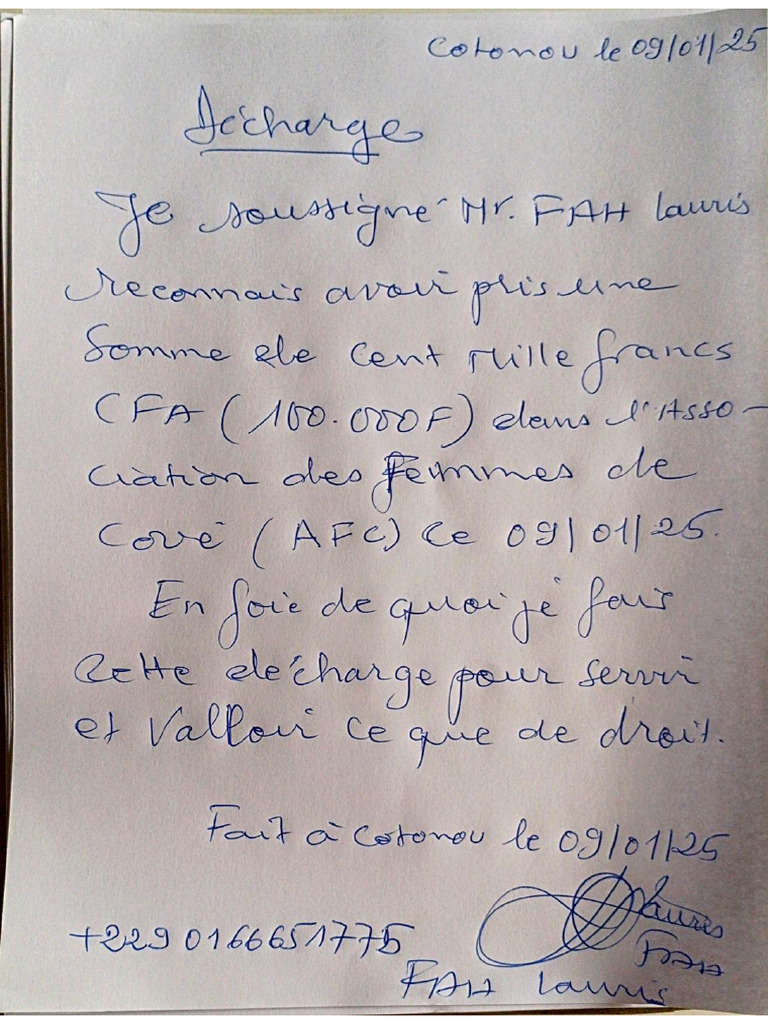 Cotonou le 09/01/25
Décharge
Je soussigné Mr. FAH lauris
reconnais avoir pris une
Somme de Cent Mille francs
CFA (100.000F) dans l'Asso-
ciation des Femmes de
Covè (AFC) Ce 09/01/25.
En foie de quoi je fais
cette décharge pour servir
et Valloir ce que de droit.
Fait à Cotonou le 09/01/25
lauris
FAH
+229 0166651775
FAH lauris